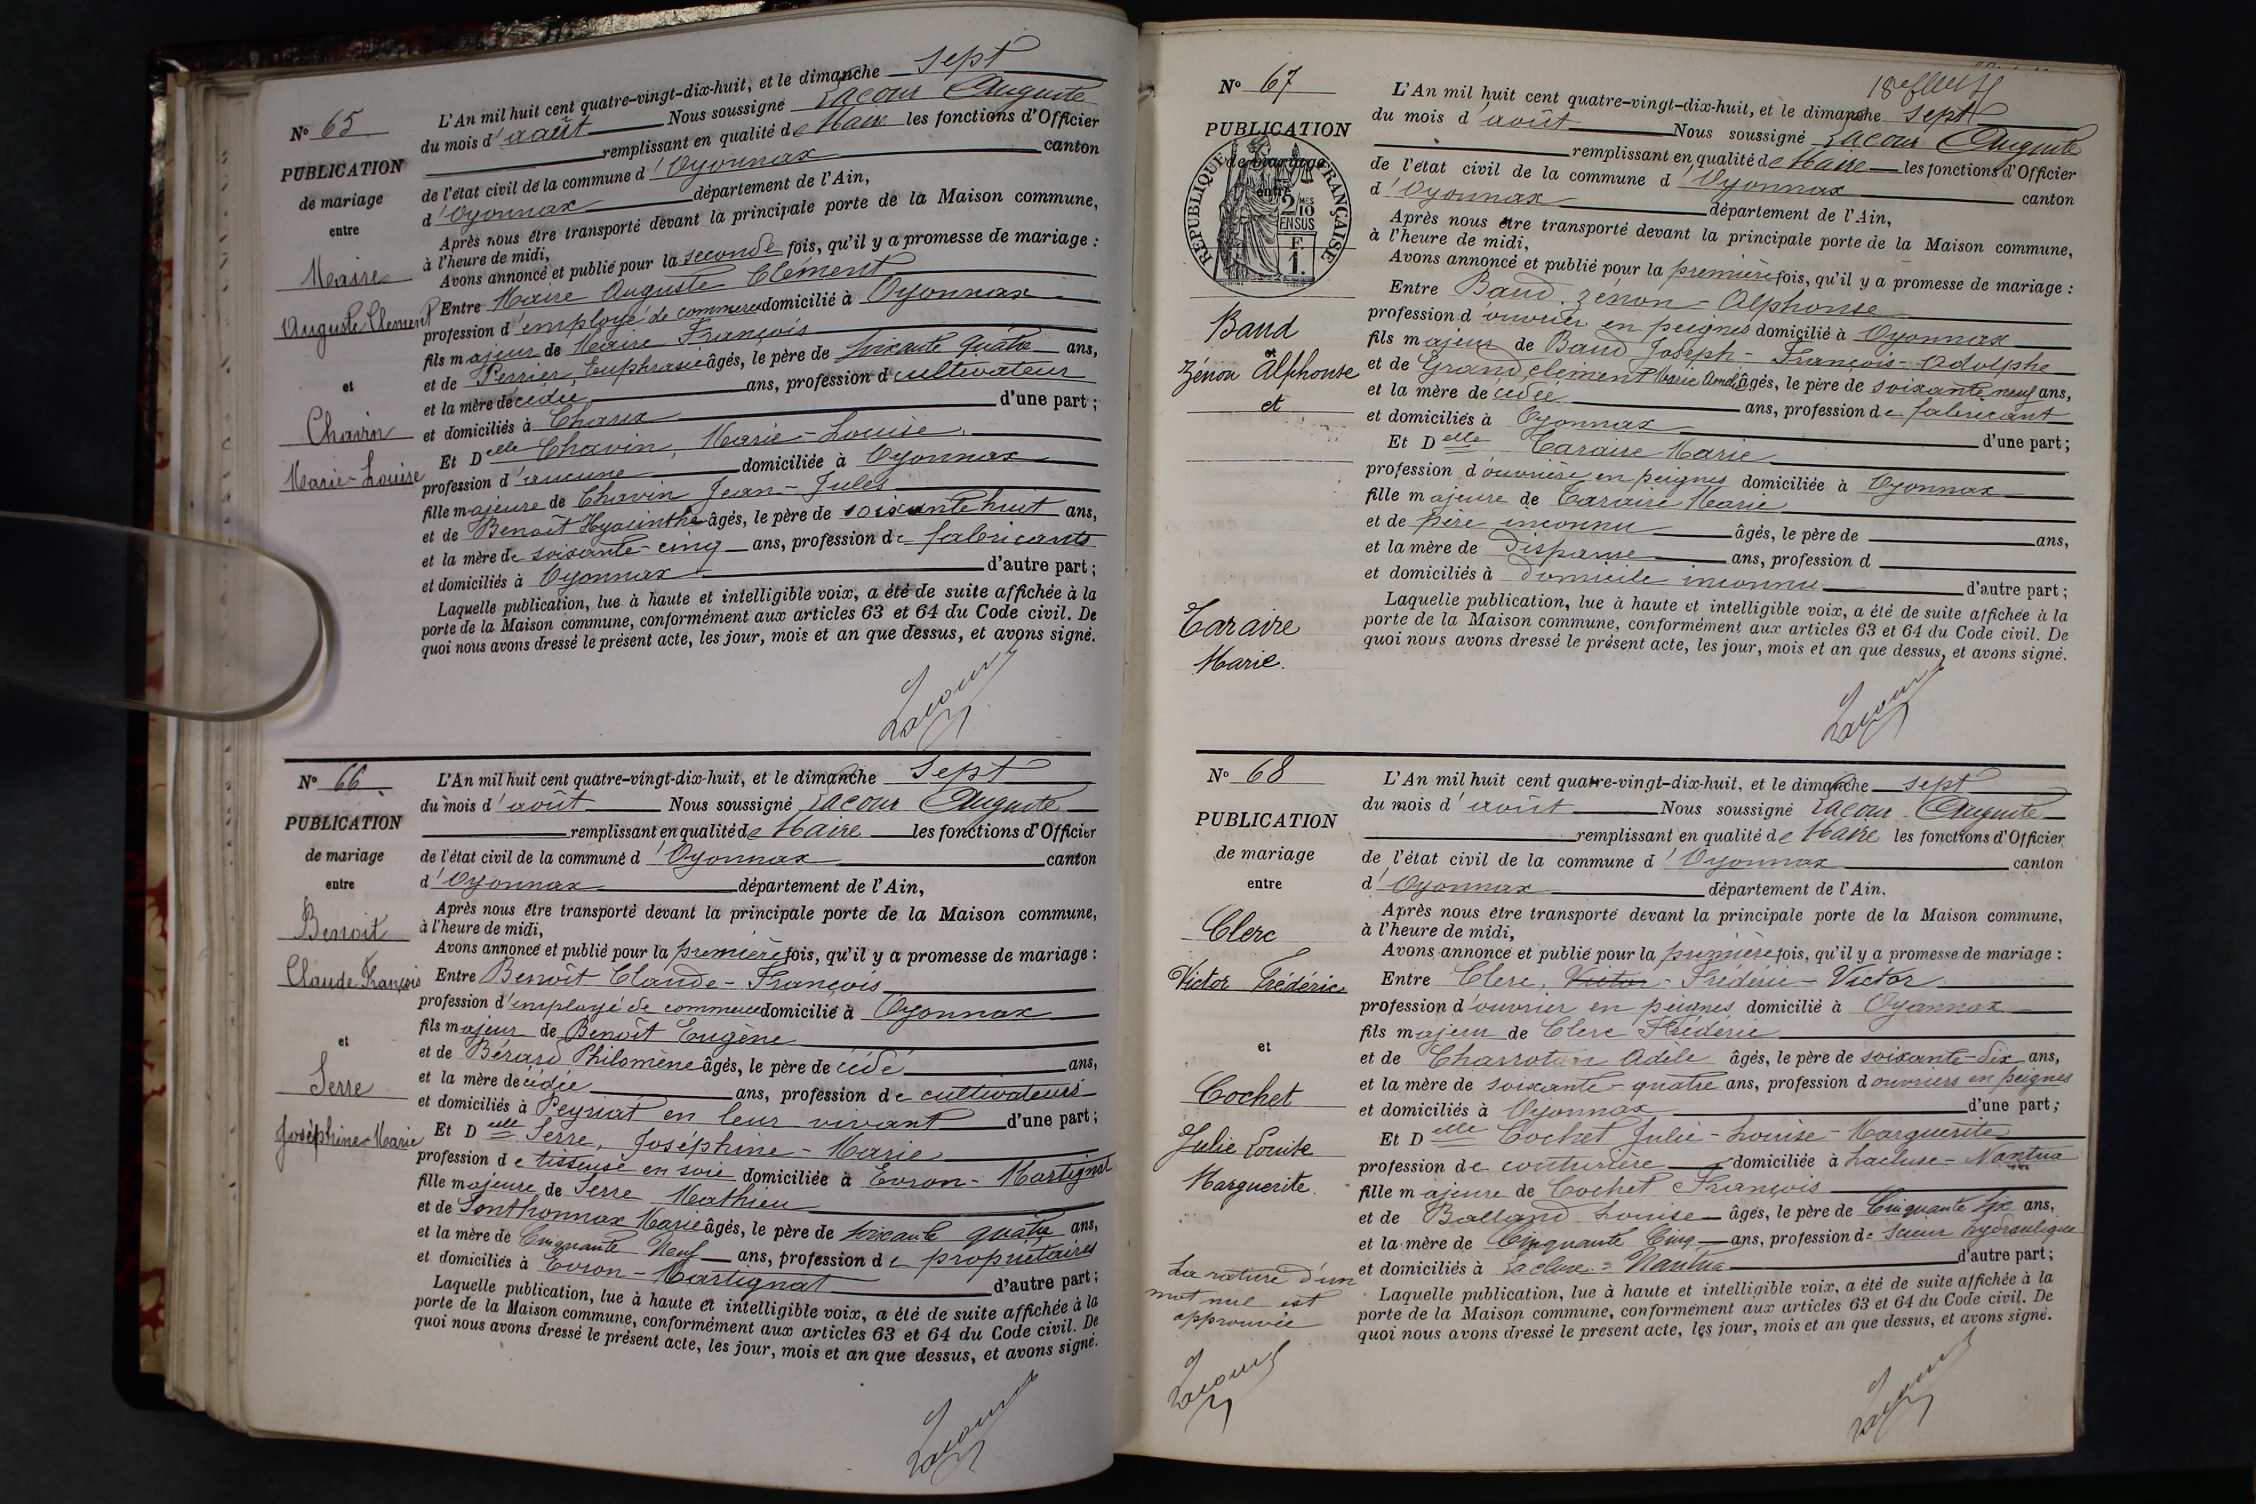 N° 65
PUBLICATION
de mariage
entre
Maire
Auguste Clément
et
Chavin
Marie-Louise
L'An mil huit cent quatre-vingt-dix-huit, et le dimanche sept
du mois d'août Nous soussigné Lacour Auguste
remplissant en qualité de Maire les fonctions d'Officier
de l'état civil de la commune d'Oyonnax canton
d'Oyonnax département de l'Ain,
Après nous être transporté devant la principale porte de la Maison commune,
à l'heure de midi,
Avons annoncé et publié pour la seconde fois, qu'il y a promesse de mariage :
Entre Maire Auguste Clément
profession d'employé de commerce domicilié à Oyonnax
fils majeur de Maire François
et de Perrier, Euphrasie âgés, le père de soixante quatre ans,
et la mère décédée ans, profession de cultivateur
et domiciliés à Charix d'une part ;
Et Delle Chavin, Marie-Louise
profession d'aucune domiciliée à Oyonnax
fille majeure de Chavin Jean-Jules
et de Benoît Hyacinthe âgés, le père de soixante huit ans,
et la mère de soixante-cinq ans, profession de fabricants
et domiciliés à Oyonnax d'autre part ;
Laquelle publication, lue à haute et intelligible voix, a été de suite affichée à la
porte de la Maison commune, conformément aux articles 63 et 64 du Code civil. De
quoi nous avons dressé le présent acte, les jour, mois et an que dessus, et avons signé.
Lacour
N° 66
PUBLICATION
de mariage
entre
Benoit
Claude François
et
Serre
Joséphine-Marie
L'An mil huit cent quatre-vingt-dix-huit, et le dimanche sept
du mois d'août Nous soussigné Lacour Auguste
remplissant en qualité de Maire les fonctions d'Officier
de l'état civil de la commune d'Oyonnax canton
d'Oyonnax département de l'Ain,
Après nous être transporté devant la principale porte de la Maison commune,
à l'heure de midi,
Avons annoncé et publié pour la première fois, qu'il y a promesse de mariage :
Entre Benoît Claude-François
profession d'employé de commerce domicilié à Oyonnax
fils majeur de Benoît Eugène
et de Bérard Philomène âgés, le père décédé ans,
et la mère décédée ans, profession de cultivateurs
et domiciliés à Peyriat en leur vivant d'une part ;
Et Delle Serre, Joséphine-Marie
profession de tisseuse en soie domiciliée à Evron-Martignat
fille majeure de Serre Mathieu
et de Sonthonnax Marie âgés, le père de soixante quatre ans,
et la mère de Cinquante Neuf ans, profession de propriétaires
et domiciliés à Evron-Martignat d'autre part ;
Laquelle publication, lue à haute et intelligible voix, a été de suite affichée à la
porte de la Maison commune, conformément aux articles 63 et 64 du Code civil. De
quoi nous avons dressé le présent acte, les jour, mois et an que dessus, et avons signé.
Lacour
18e
N° 67
PUBLICATION
de mariage
entre
RÉPUBLIQUE FRANÇAISE
2/10 MES
EN SUS
F.
1.
Baud
Zénon Alphonse
et
et
Taraire
Marie.
L'An mil huit cent quatre-vingt-dix-huit, et le dimanche sept
du mois d'août Nous soussigné Lacour Auguste
remplissant en qualité de Maire les fonctions d'Officier
de l'état civil de la commune d'Oyonnax canton
d'Oyonnax département de l'Ain,
Après nous être transporté devant la principale porte de la Maison commune,
à l'heure de midi,
Avons annoncé et publié pour la première fois, qu'il y a promesse de mariage :
Entre Baud, Zénon-Alphonse
profession d'ouvrier en peignes domicilié à Oyonnax
fils majeur de Baud Joseph-François-Adolphe
et de Grand, clément Marie âgés, le père de soixante neuf ans,
et la mère décédée ans, profession de fabricant
et domiciliés à Oyonnax d'une part ;
Et Delle Taraire Marie
profession d'ouvrière en peignes domiciliée à Oyonnax
fille majeure de Taraire Marie
et de père inconnu âgés, le père de ans,
et la mère de disparue ans, profession d
et domiciliés à domicile inconnu d'autre part ;
Laquelle publication, lue à haute et intelligible voix, a été de suite affichée à la
porte de la Maison commune, conformément aux articles 63 et 64 du Code civil. De
quoi nous avons dressé le présent acte, les jour, mois et an que dessus, et avons signé.
Lacour
N° 68
PUBLICATION
de mariage
entre
Clerc
Victor Frédéric
et
Cochet
Julie Louise
Marguerite.
La rature d'un
mot nul est
approuvée
Lacour
L'An mil huit cent quatre-vingt-dix-huit, et le dimanche sept
du mois d'août Nous soussigné Lacour Auguste
remplissant en qualité de Maire les fonctions d'Officier
de l'état civil de la commune d'Oyonnax canton
d'Oyonnax département de l'Ain,
Après nous être transporté devant la principale porte de la Maison commune,
à l'heure de midi,
Avons annoncé et publié pour la première fois, qu'il y a promesse de mariage :
Entre Clerc, Victor-Frédéric-Victor
profession d'ouvrier en peignes domicilié à Oyonnax
fils majeur de Clerc Frédéric
et de Charroton Adèle âgés, le père de soixante-dix ans,
et la mère de soixante-quatre ans, profession d'ouvriers en peignes
et domiciliés à Oyonnax d'une part ;
Et Delle Cochet Julie-Louise-Marguerite
profession de couturière domiciliée à Lacluse-Nantua
fille majeure de Cochet François
et de Balland Louise âgés, le père de Cinquante Six ans,
et la mère de Cinquante Cinq ans, profession de Scieur hydraulique
et domiciliés à Lacluse-Nantua d'autre part ;
Laquelle publication, lue à haute et intelligible voix, a été de suite affichée à la
porte de la Maison commune, conformément aux articles 63 et 64 du Code civil. De
quoi nous avons dressé le présent acte, les jour, mois et an que dessus, et avons signé.
Lacour